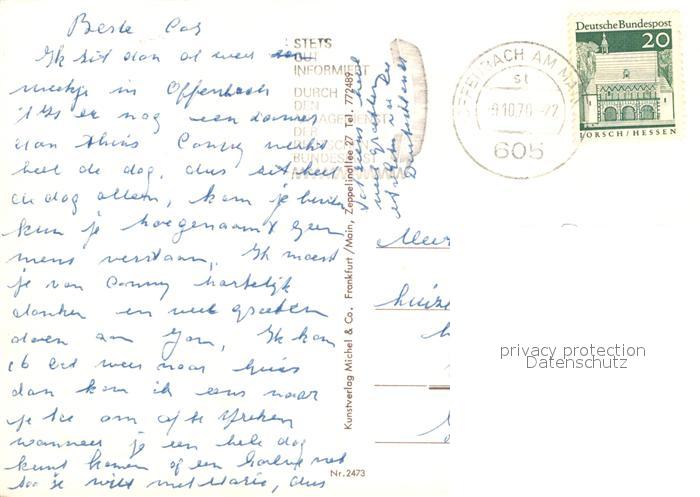 Beste Cas
Ik zit dan al weer een
weekje in Offenbach
it is er nog een
van thuis Conny werkt
heel de dag, dus zit heel
de dag alleen, kom je buiten
kun je hoegenaamt geen
mens verstaan, Ik moest
je van Conny hartelijk
danken en veel groeten
doen aan Ik kom
16 oct weer naar huis
dan kom ik eens naar
je toe om af te spreken
wanneer je een hele dag
kunt komen of een halve net
zoals je wilt met Marie, dus
tot ziens heel
veel groeten
uit
Duitsland
STETS
GUT
INFORMIERT
DURCH
DEN
DIENST
DER
DEUTSCHEN
BUNDESPOST
OFFENBACH AM MAIN
st
9.10.70
605
Deutsche Bundespost
20
LORSCH/HESSEN
Kunstverlag Michel & Co. Frankfurt/Main, Zeppelinallee 27 Tel. 772489
Nr. 2473
privacy protection
Datenschutz